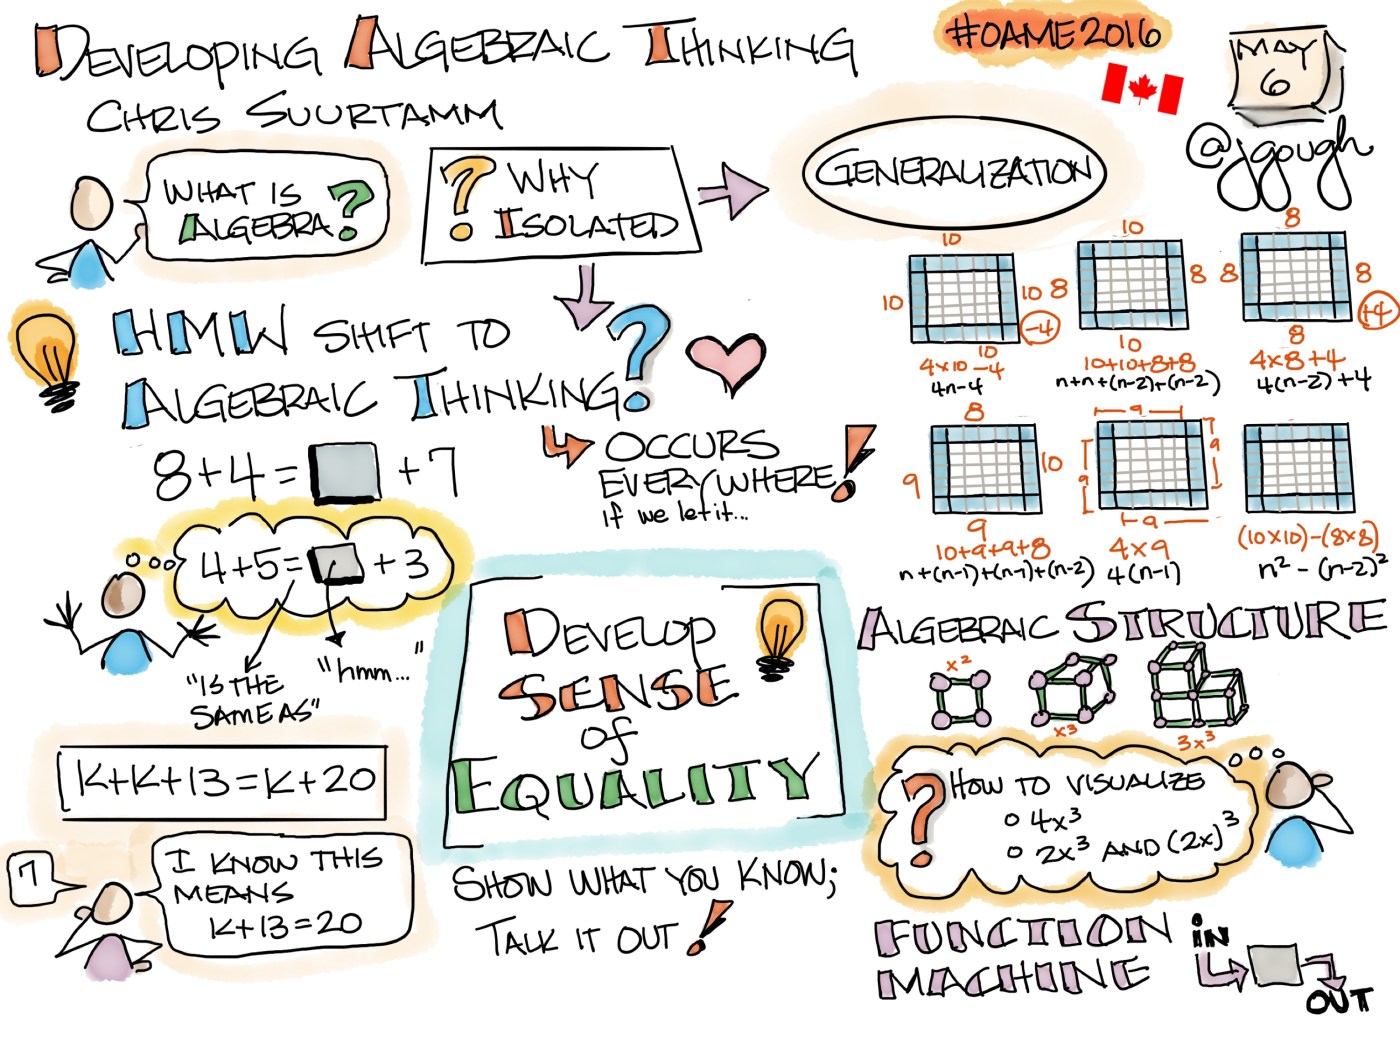 DEVELOPING ALGEBRAIC THINKING
CHRIS SUURTAMM
#OAME2016
MAY
6
@jgough
WHAT IS
ALGEBRA?
? WHY
ISOLATED
GENERALIZATION
HMW SHIFT TO
ALGEBRAIC THINKING?
OCCURS
EVERYWHERE!
if we let it...
8+4= +7
4+5= +3
"IS THE
SAME AS"
"hmm..."
K+K+13=K+20
7
I KNOW THIS
MEANS
K+13=20
DEVELOP
SENSE
of
EQUALITY
SHOW WHAT YOU KNOW;
TALK IT OUT!
10
10
10
-4
10
4×10-4
4n-4
10
8
8
10
10+10+8+8
n+n+(n-2)+(n-2)
8
8
8
+4
8
4×8+4
4(n-2)+4
8
9
10
9
10+9+9+8
n+(n-1)+(n-1)+(n-2)
9
9
9
9
4×9
4(n-1)
(10×10)-(8×8)
n²-(n-2)²
ALGEBRAIC STRUCTURE
x²
x³
3x³
? HOW TO VISUALIZE
4x³
2x³ AND (2x)³
FUNCTION
MACHINE
IN
OUT